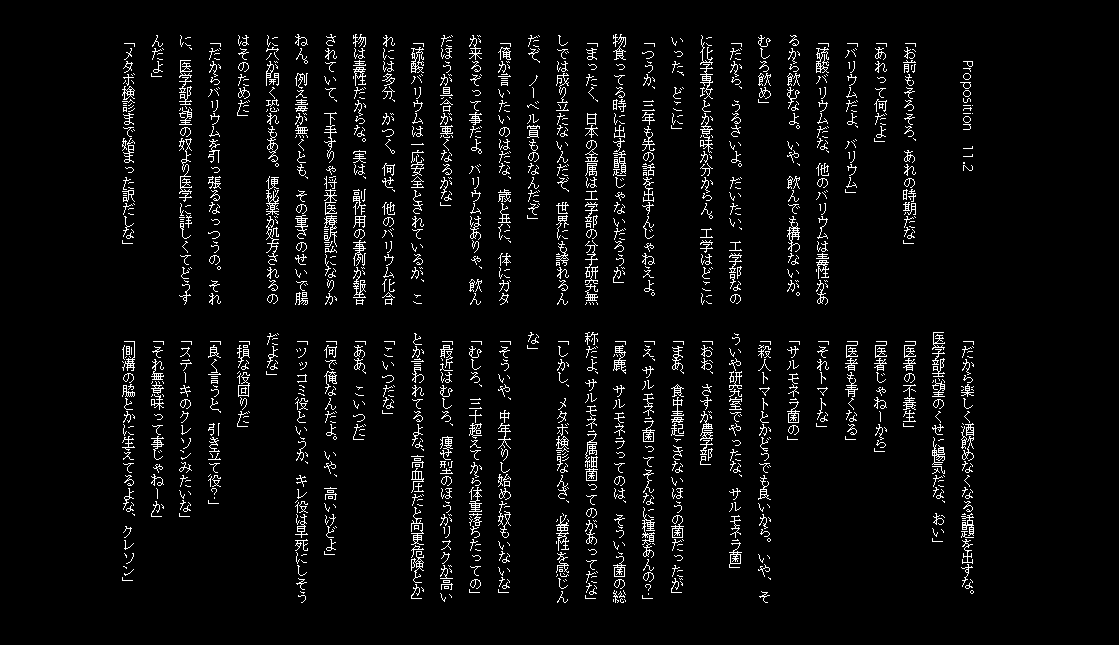 Proposition 112
「お前もそろそろ、あれの時期だな」
「あれって何だよ」
「バリウムだよ、バリウム」
「硫酸バリウムだな、他のバリウムは毒性があ
るから飲むなよ。いや、飲んでも構わないが。
むしろ飲め」
「だから、うるさいよ。だいたい、工学部なの
に化学専攻とか意味が分からん。工学はどこに
いった、どこに」
「つうか、三年も先の話を出すんじゃねえよ。
物食ってる時に出す話題じゃないだろうが」
「まったく、日本の金属は工学部の分子研究無
しでは成り立たないんだぞ、世界にも誇れるん
だぞ、ノーベル賞ものなんだぞ」
「俺が言いたいのはだな、歳と共に、体にガタ
が来るぞって事だよ。バリウムはありゃ、飲ん
だほうが具合が悪くなるがな」
「硫酸バリウムは一応安全とされているが、こ
れには多分、がつく。何せ、他のバリウム化合
物は毒性だからな。実は、副作用の事例が報告
されていて、下手すりゃ将来医療訴訟になりか
ねん。例え毒が無くとも、その重さのせいで腸
に穴が開く恐れもある。便秘薬が処方されるの
はそのためだ」
「だからバリウムを引っ張るなっつうの。それ
に、医学部志望の奴より医学に詳しくてどうす
んだよ」
「メタボ検診まで始まった訳だしな」
「だから楽しく酒飲めなくなる話題を出すな。
医学部志望のくせに暢気だな、おい」
「医者の不養生」
「医者じゃねーから」
「医者も青くなる」
「それトマトな」
「サルモネラ菌の」
「殺人トマトとかどうでも良いから。いや、そ
ういや研究室でやったな、サルモネラ菌」
「おお、さすが農学部」
「まあ、食中毒起こさないほうの菌だったが」
「え、サルモネラ菌ってそんなに種類あんの？」
「馬鹿、サルモネラってのは、そういう菌の総
称だよ、サルモネラ属細菌ってのがあってだな」
「しかし、メタボ検診なんざ、必要性を感じん
な」
「そういや、中年太りし始めた奴もいないな」
「むしろ、三十超えてから体重落ちたっての」
「最近はむしろ、痩せ型のほうがリスクが高い
とか言われてるよな、高血圧だと尚更危険とか」
「こいつだな」
「ああ、こいつだ」
「何で俺なんだよ。いや、高いけどよ」
「ツッコミ役というか、キレ役は早死にしそう
だよな」
「損な役回りだ」
「良く言うと、引き立て役？」
「ステーキのクレソンみたいな」
「それ無意味って事じゃねーか」
「側溝の脇とかに生えてるよな、クレソン」